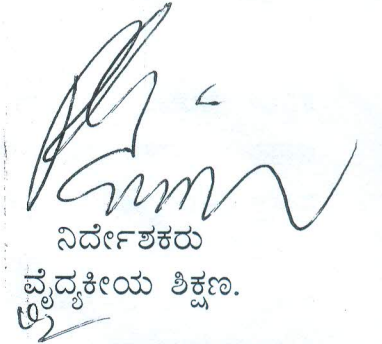 ನಿರ್ದೇಶಕರು
ವೈದ್ಯಕೀಯ ಶಿಕ್ಷಣ.